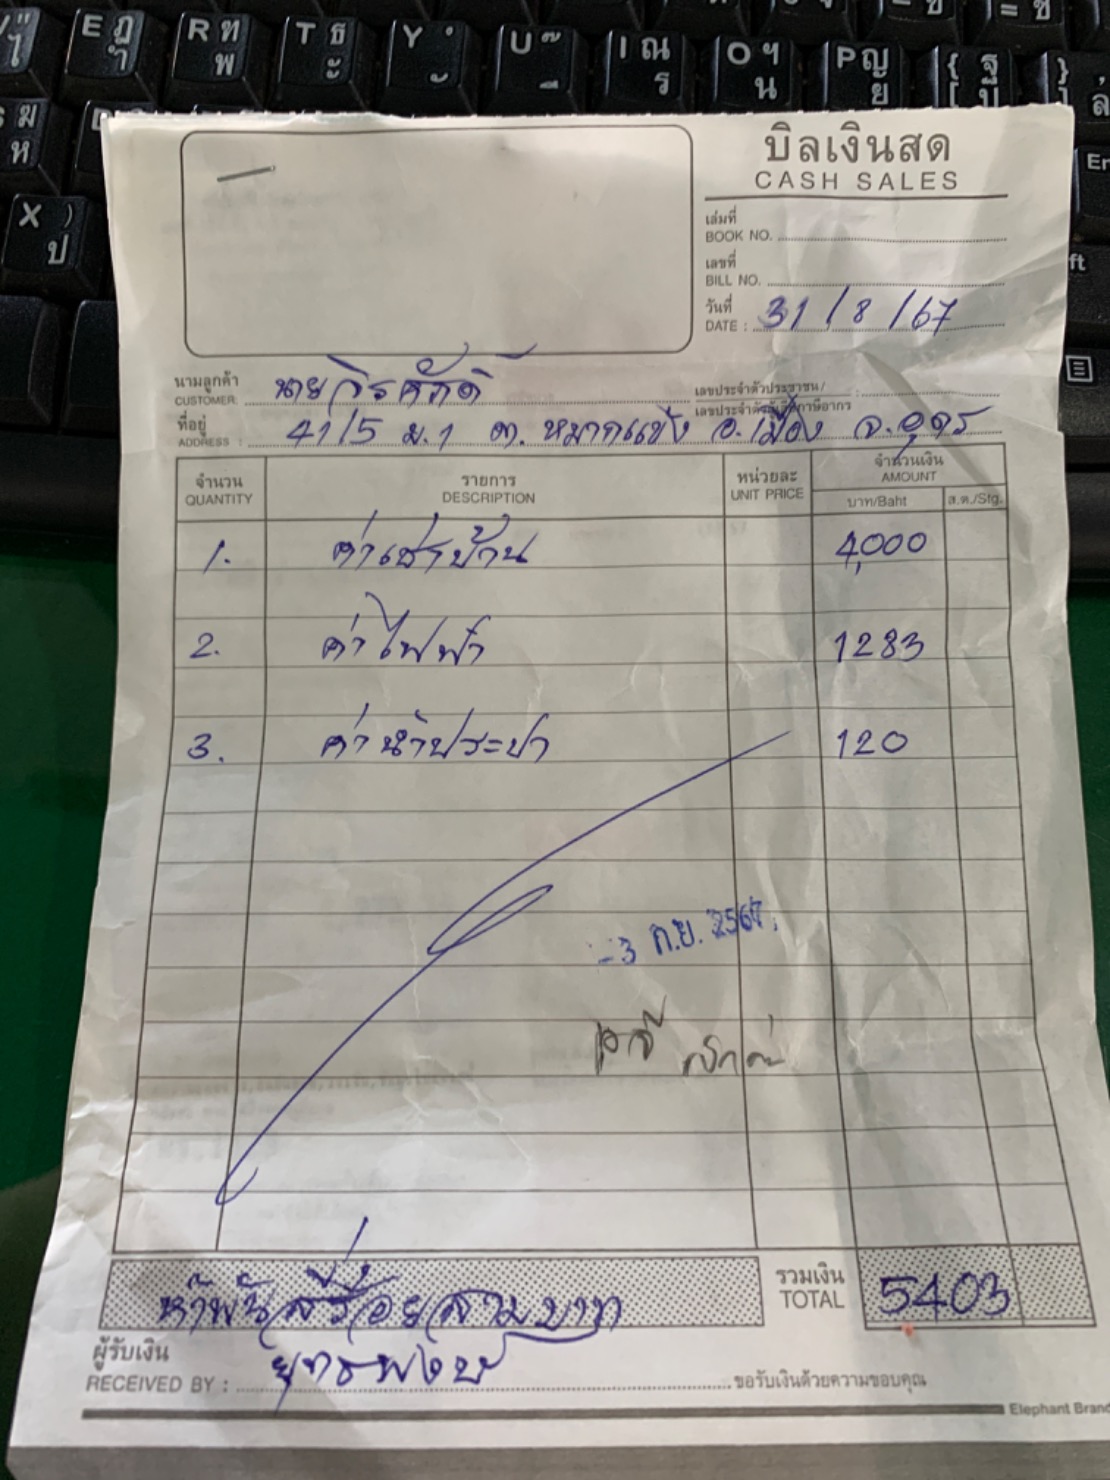 E ฎ ำ R ฑ พ T ธ ะ Y ั U ๊ ี I ณ ร O ฯ น P ญ ย { ฐ [ บ }
ฆ ห
X ) ป
บิลเงินสด
CASH SALES
เล่มที่
BOOK NO.
เลขที่
BILL NO.
วันที่
DATE : 31/8/67
นามลูกค้า
CUSTOMER นายวิรศักดิ์ เลขประจำตัวประชาชน/ :
เลขประจำตัวผู้เสียภาษีอากร
ที่อยู่
ADDRESS : 41/5 ม.1 ต.หมากแข้ง อ.เมือง จ.อุดร
จำนวน รายการ หน่วยละ จำนวนเงิน
QUANTITY DESCRIPTION UNIT PRICE AMOUNT
บาท/Baht ส.ต./Stg.
1. ค่าเช่าบ้าน 4,000
2. ค่าไฟฟ้า 1283
3. ค่าน้ำประปา 120
-3 ก.ย. 2567
ห้าพันสี่ร้อยสามบาท รวมเงิน 5403
TOTAL
ผู้รับเงิน
RECEIVED BY : ยุทธพงษ์ ขอรับเงินด้วยความขอบคุณ
Elephant Brand